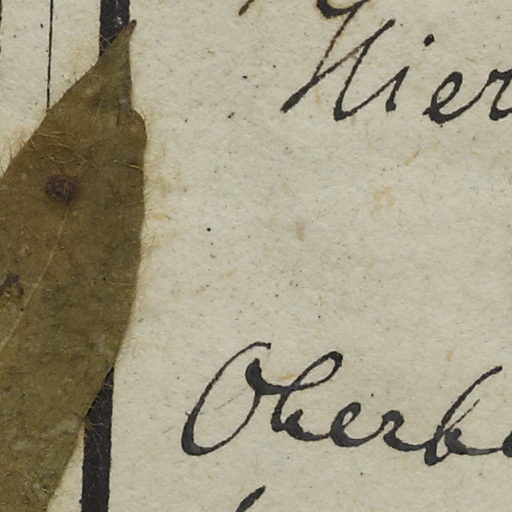 Hier
Oberb